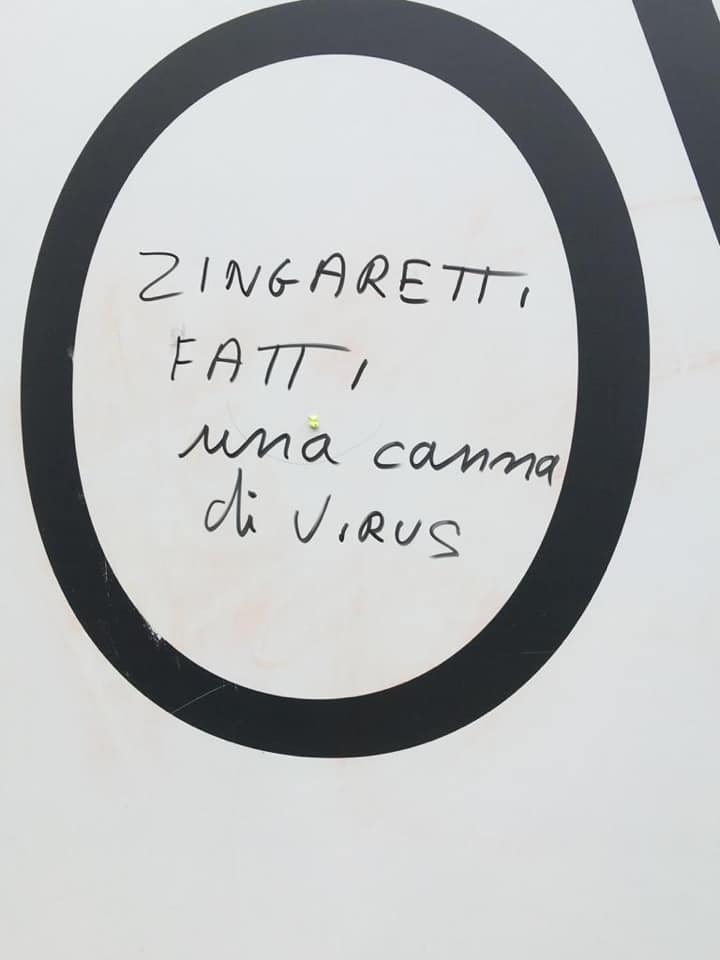 ZINGARETTI
FATTI
una canna
di VIRUS